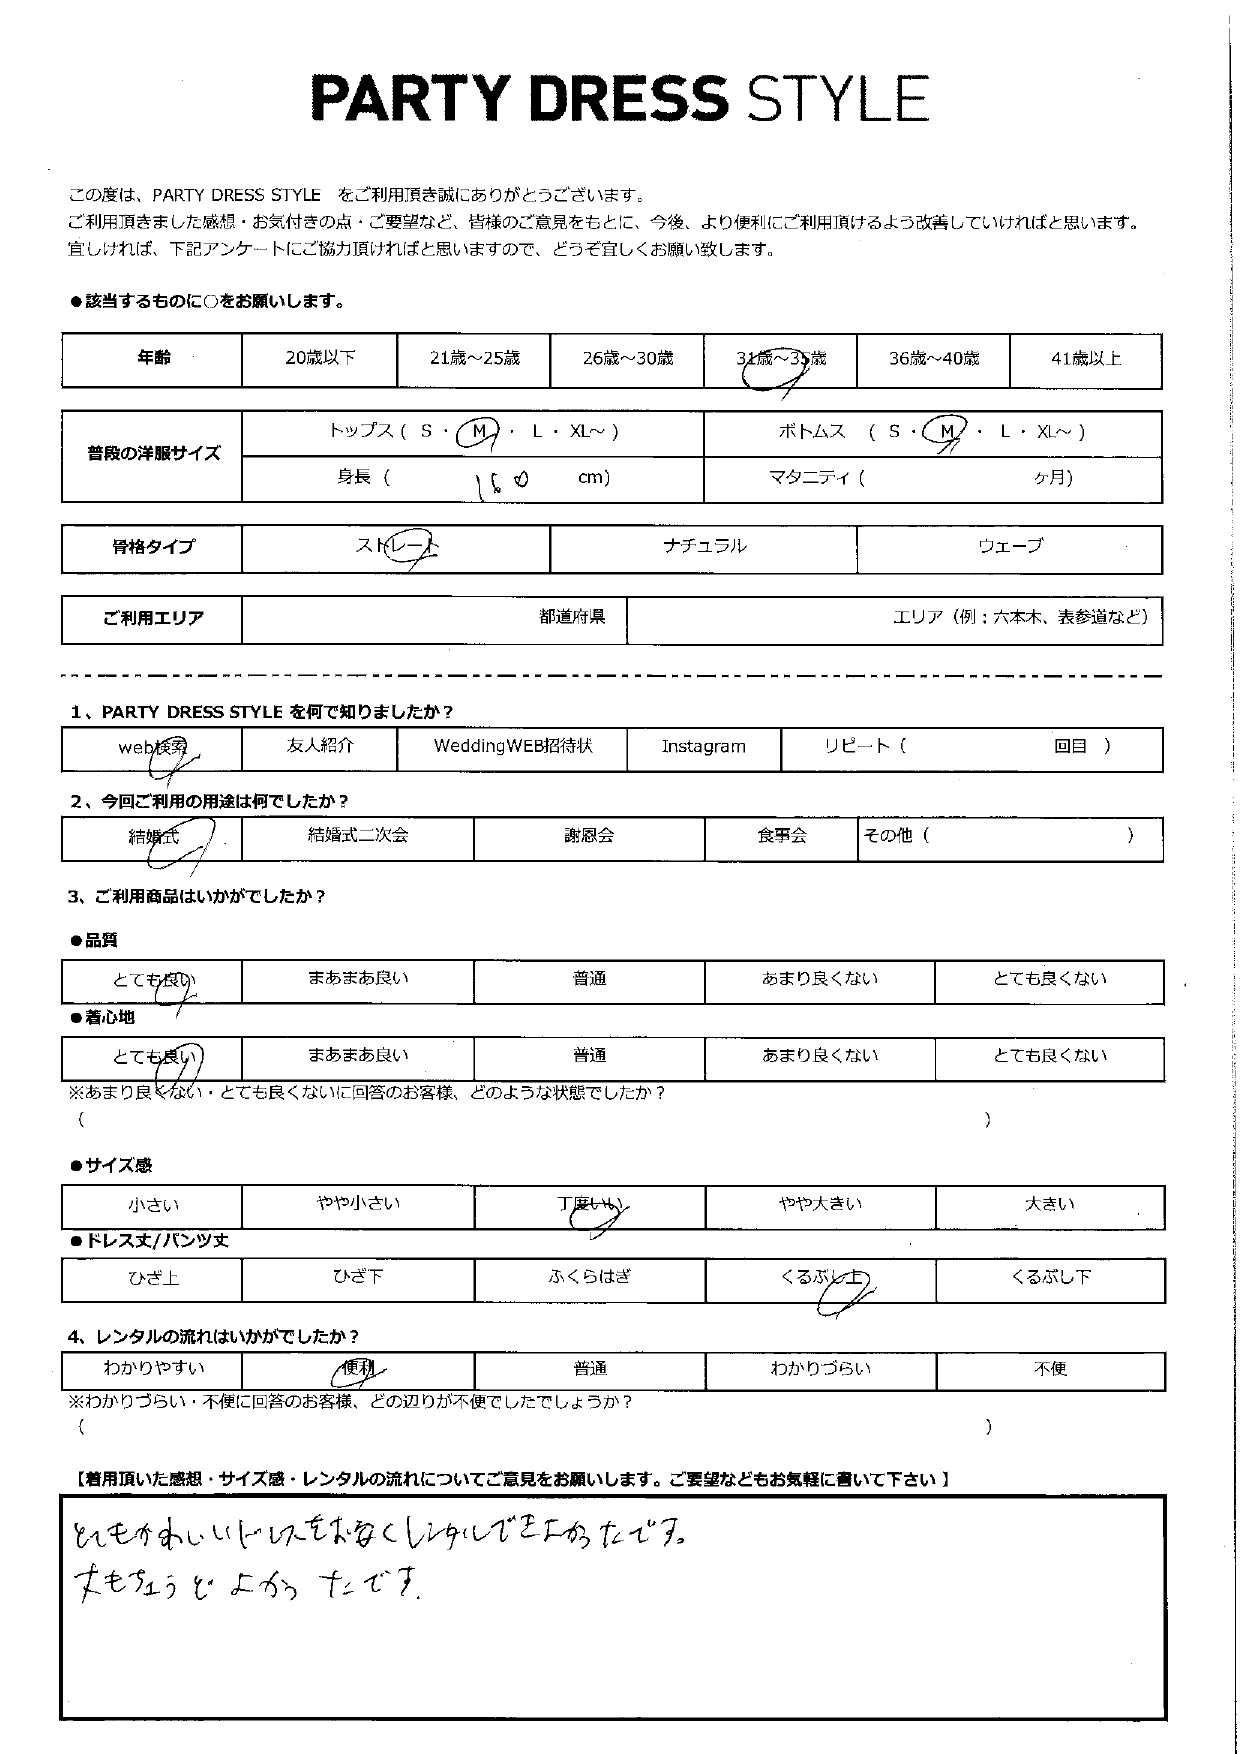 PARTY DRESS STYLE
この度は、PARTY DRESS STYLE をご利用頂き誠にありがとうございます。
ご利用頂きました感想・お気付きの点・ご要望など、皆様のご意見をもとに、今後、より便利にご利用頂けるよう改善していければと思います。
宜しければ、下記アンケートにご協力頂ければと思いますので、どうぞ宜しくお願い致します。
●該当するものに○をお願いします。
年齢 20歳以下 21歳～25歳 26歳～30歳 31歳～35歳 36歳～40歳 41歳以上
普段の洋服サイズ トップス ( S ・ M ・ L ・ XL～ ) ボトムス ( S ・ M ・ L ・ XL～ )
身長 ( 160 cm) マタニティ ( ヶ月)
骨格タイプ ストレート ナチュラル ウェーブ
ご利用エリア 都道府県 エリア（例：六本木、表参道など）
1、PARTY DRESS STYLE を何で知りましたか？
web検索 友人紹介 WeddingWEB招待状 Instagram リピート ( 回目 )
2、今回ご利用の用途は何でしたか？
結婚式 結婚式二次会 謝恩会 食事会 その他 ( )
3、ご利用商品はいかがでしたか？
●品質
とても良い まあまあ良い 普通 あまり良くない とても良くない
●着心地
とても良い まあまあ良い 普通 あまり良くない とても良くない
※あまり良くない・とても良くないに回答のお客様、どのような状態でしたか？
( )
●サイズ感
小さい やや小さい 丁度いい やや大きい 大きい
●ドレス丈/パンツ丈
ひざ上 ひざ下 ふくらはぎ くるぶし上 くるぶし下
4、レンタルの流れはいかがでしたか？
わかりやすい 便利 普通 わかりづらい 不便
※わかりづらい・不便に回答のお客様、どの辺りが不便でしたでしょうか？
( )
【着用頂いた感想・サイズ感・レンタルの流れについてご意見をお願いします。ご要望などもお気軽に書いて下さい】
とてもかわいいドレスをレンタルできてよかったです。
丈もちょうどよかったです.